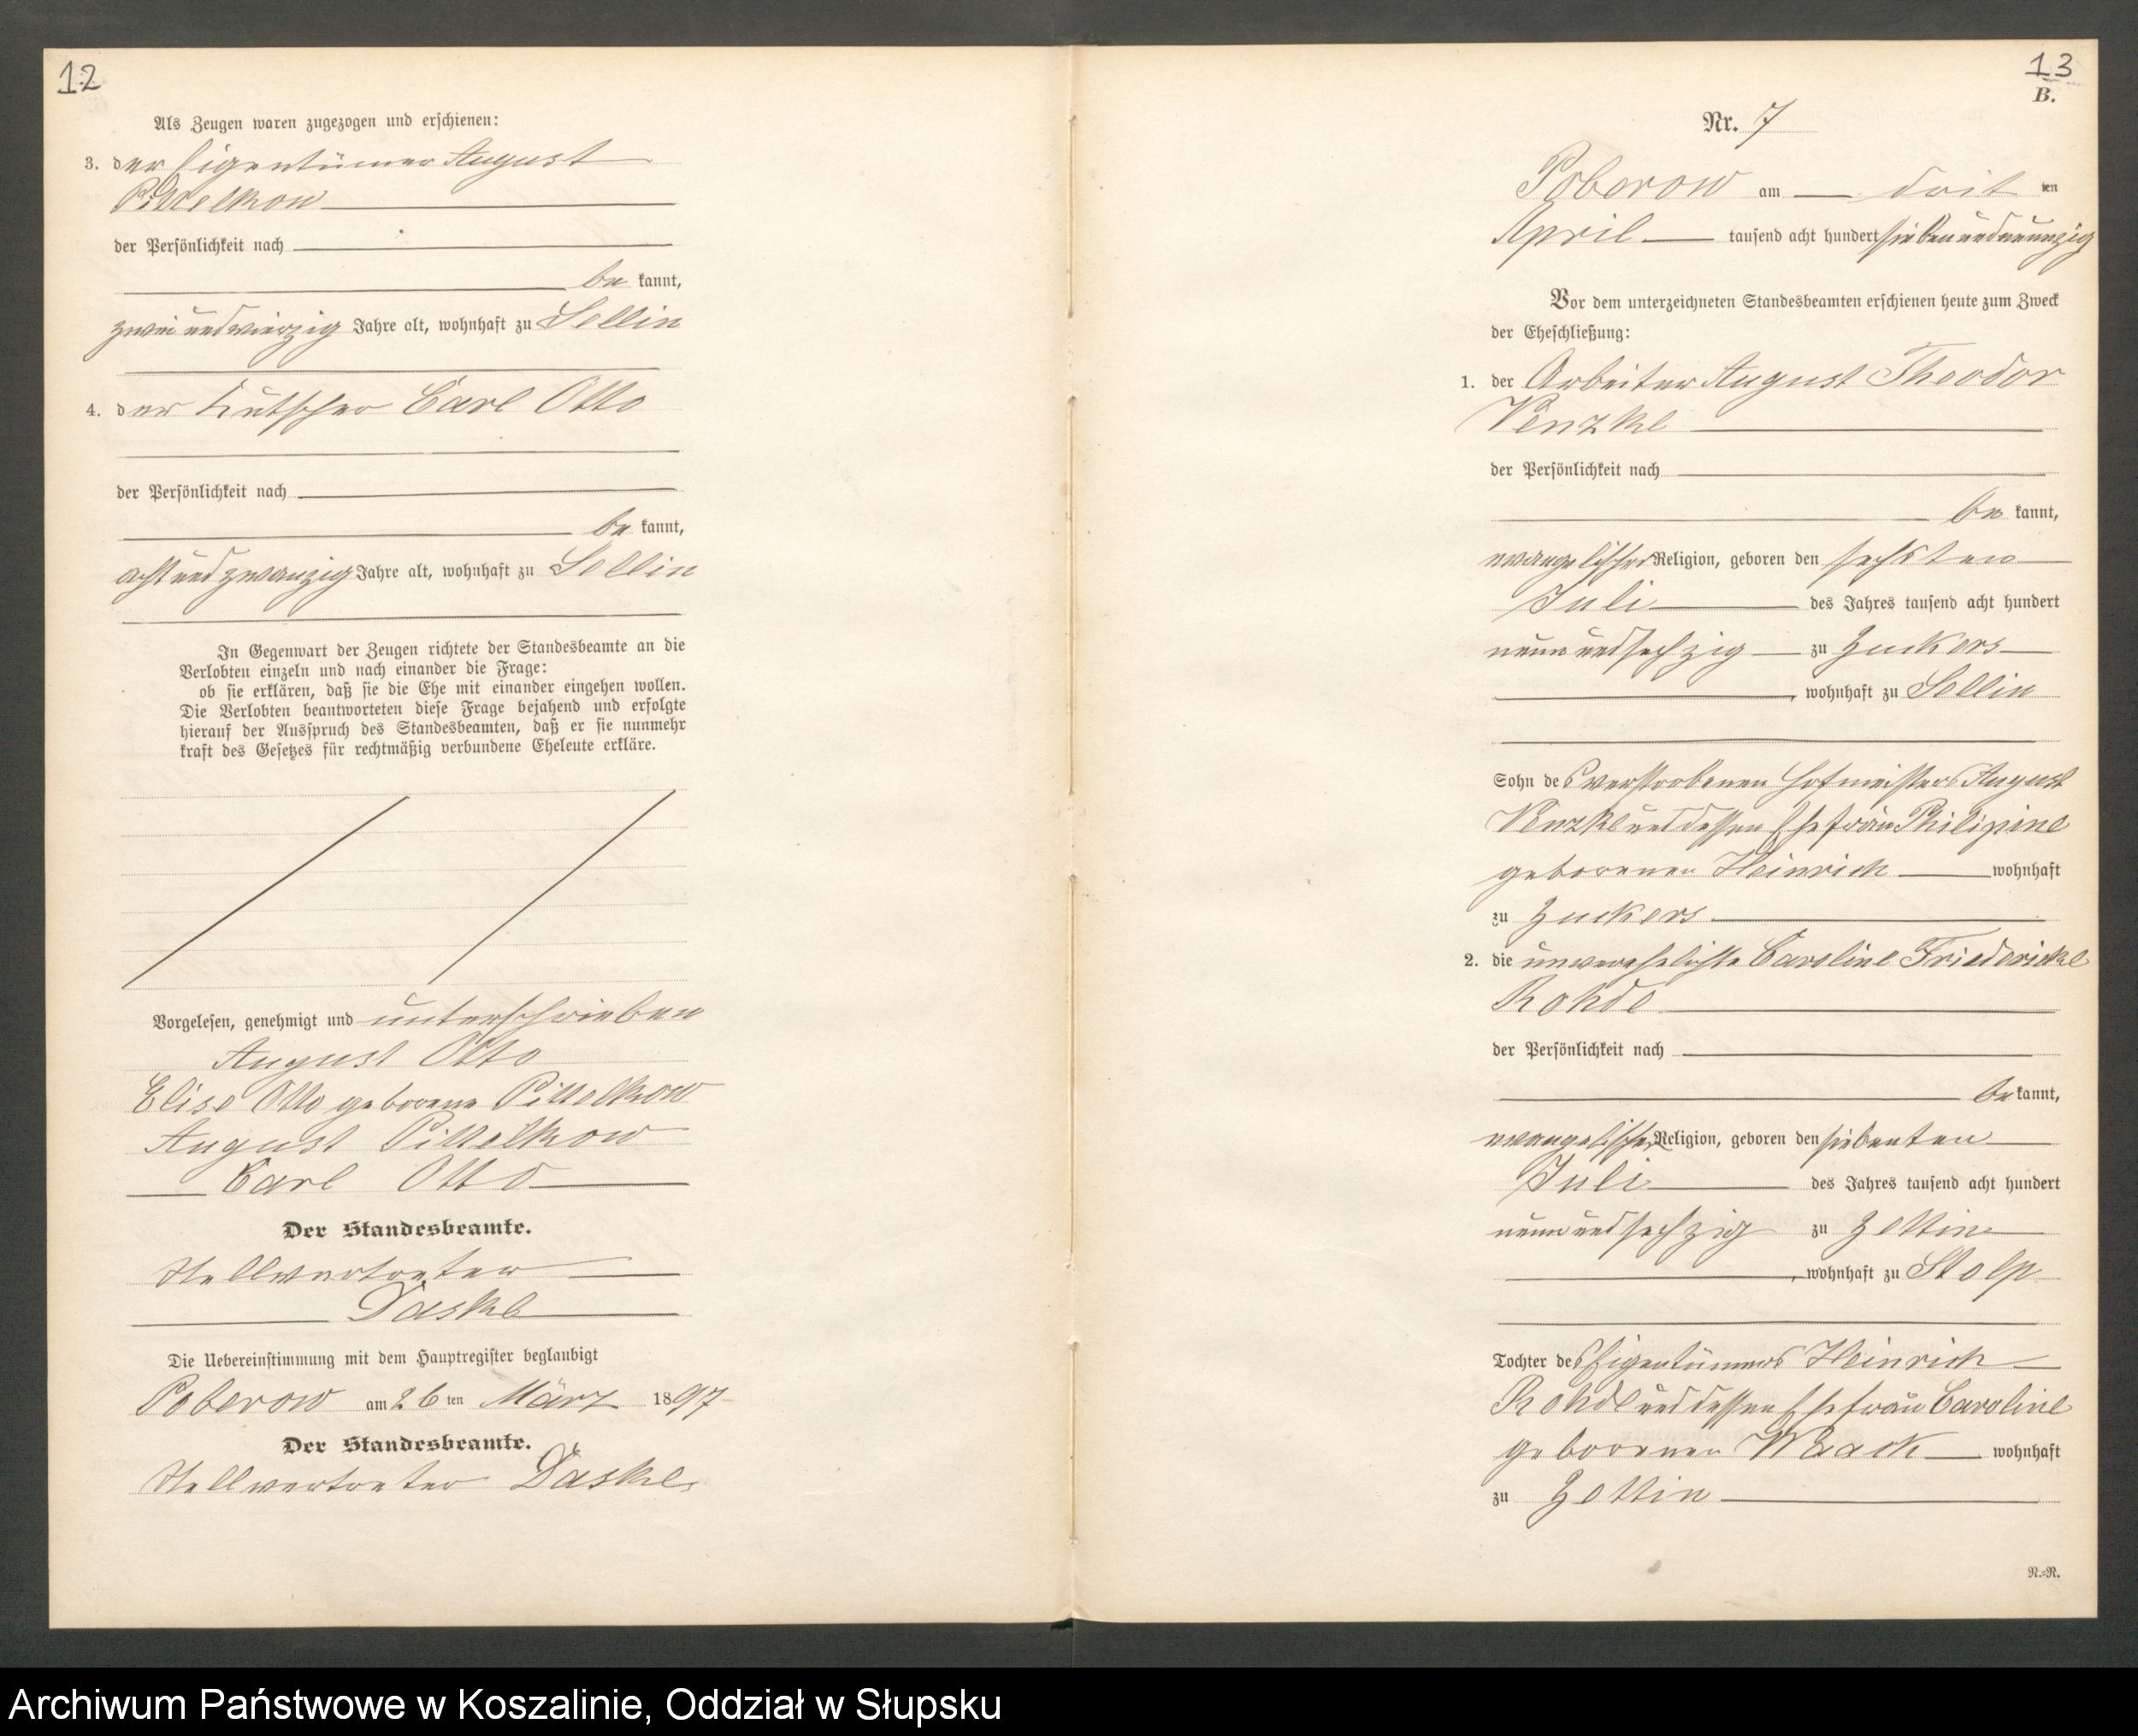 12
Als Zeugen waren zugezogen und erschienen:
3. der Eigentümer August
Pittelkow
der Persönlichkeit nach
be kannt,
zweiundvierzig Jahre alt, wohnhaft zu Sellin
4. der Kutscher Carl Otto
der Persönlichkeit nach
be kannt,
achtundzwanzig Jahre alt, wohnhaft zu Sellin
In Gegenwart der Zeugen richtete der Standesbeamte an die
Verlobten einzeln und nach einander die Frage:
ob sie erklären, daß sie die Ehe mit einander eingehen wollen.
Die Verlobten beantworteten diese Frage bejahend und erfolgte
hierauf der Ausspruch des Standesbeamten, daß er sie nunmehr
kraft des Gesetzes für rechtmäßig verbundene Eheleute erkläre.
Vorgelesen, genehmigt und unterschrieben
August Otto
Elise Otto geborene Pittelkow
August Pittelkow
Carl Otto
Der Standesbeamte.
Stellvertreter
Daske
Die Uebereinstimmung mit dem Hauptregister beglaubigt
Poberow am 26 ten März 1897
Der Standesbeamte.
Stellvertreter Daske
13
B.
Nr. 7
Poberow am drit ten
April tausend acht hundert siebenundneunzig
Vor dem unterzeichneten Standesbeamten erschienen heute zum Zweck
der Eheschließung:
1. der Arbeiter August Theodor
Venzke
der Persönlichkeit nach
be kannt,
evangelischer Religion, geboren den sechsten
Juli des Jahres tausend acht hundert
neunundsechzig zu Zuckers
, wohnhaft zu Sellin
Sohn des verstorbenen Hofmeisters August
Venzke und dessen Ehefrau Philipine
geborenen Heinrich wohnhaft
zu Zuckers
2. die unverehelichte Caroline Friedericke
Rohde
der Persönlichkeit nach
be kannt,
evangelischer Religion, geboren den siebenten
Juli des Jahres tausend acht hundert
neunundsechzig zu Zettin
, wohnhaft zu Stolp
Tochter des Eigentümers Heinrich
Rohde und dessen Ehefrau Caroline
geborenen Waack wohnhaft
zu Zettin
N.=N.
Archiwum Państwowe w Koszalinie, Oddział w Słupsku